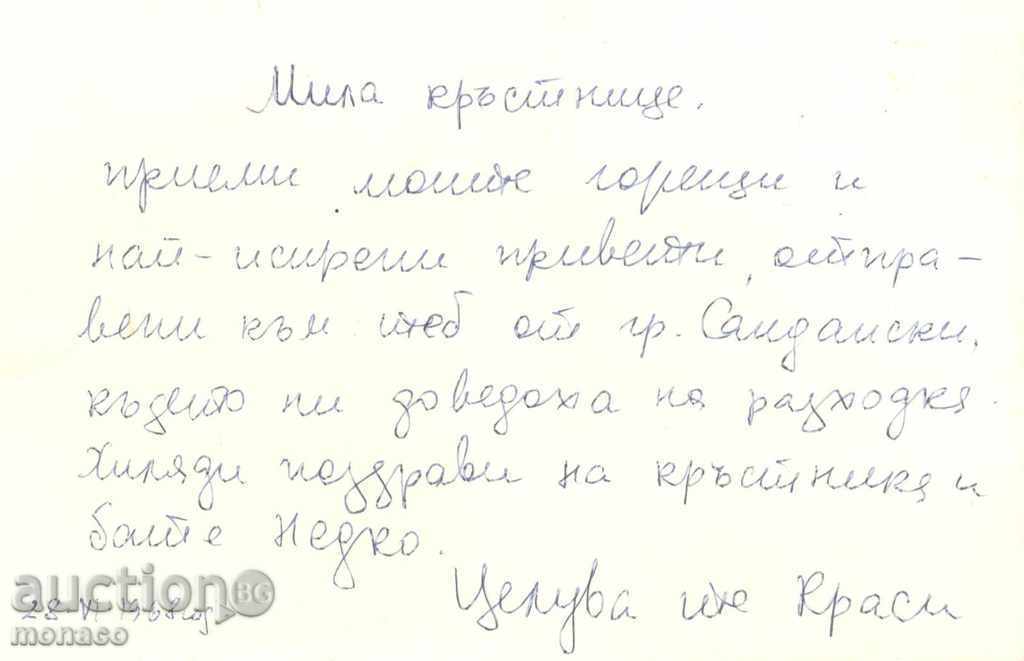 Мила кръстнице,
приеми моите горещи и
най-искрени привети, отпра-
вени към теб от гр. Сандански,
където ни доведоха на разходка.
Хиляди поздрави на кръстника и
бате Недко.
Целува те Краси
28 1968 год
auctionBG
monaco